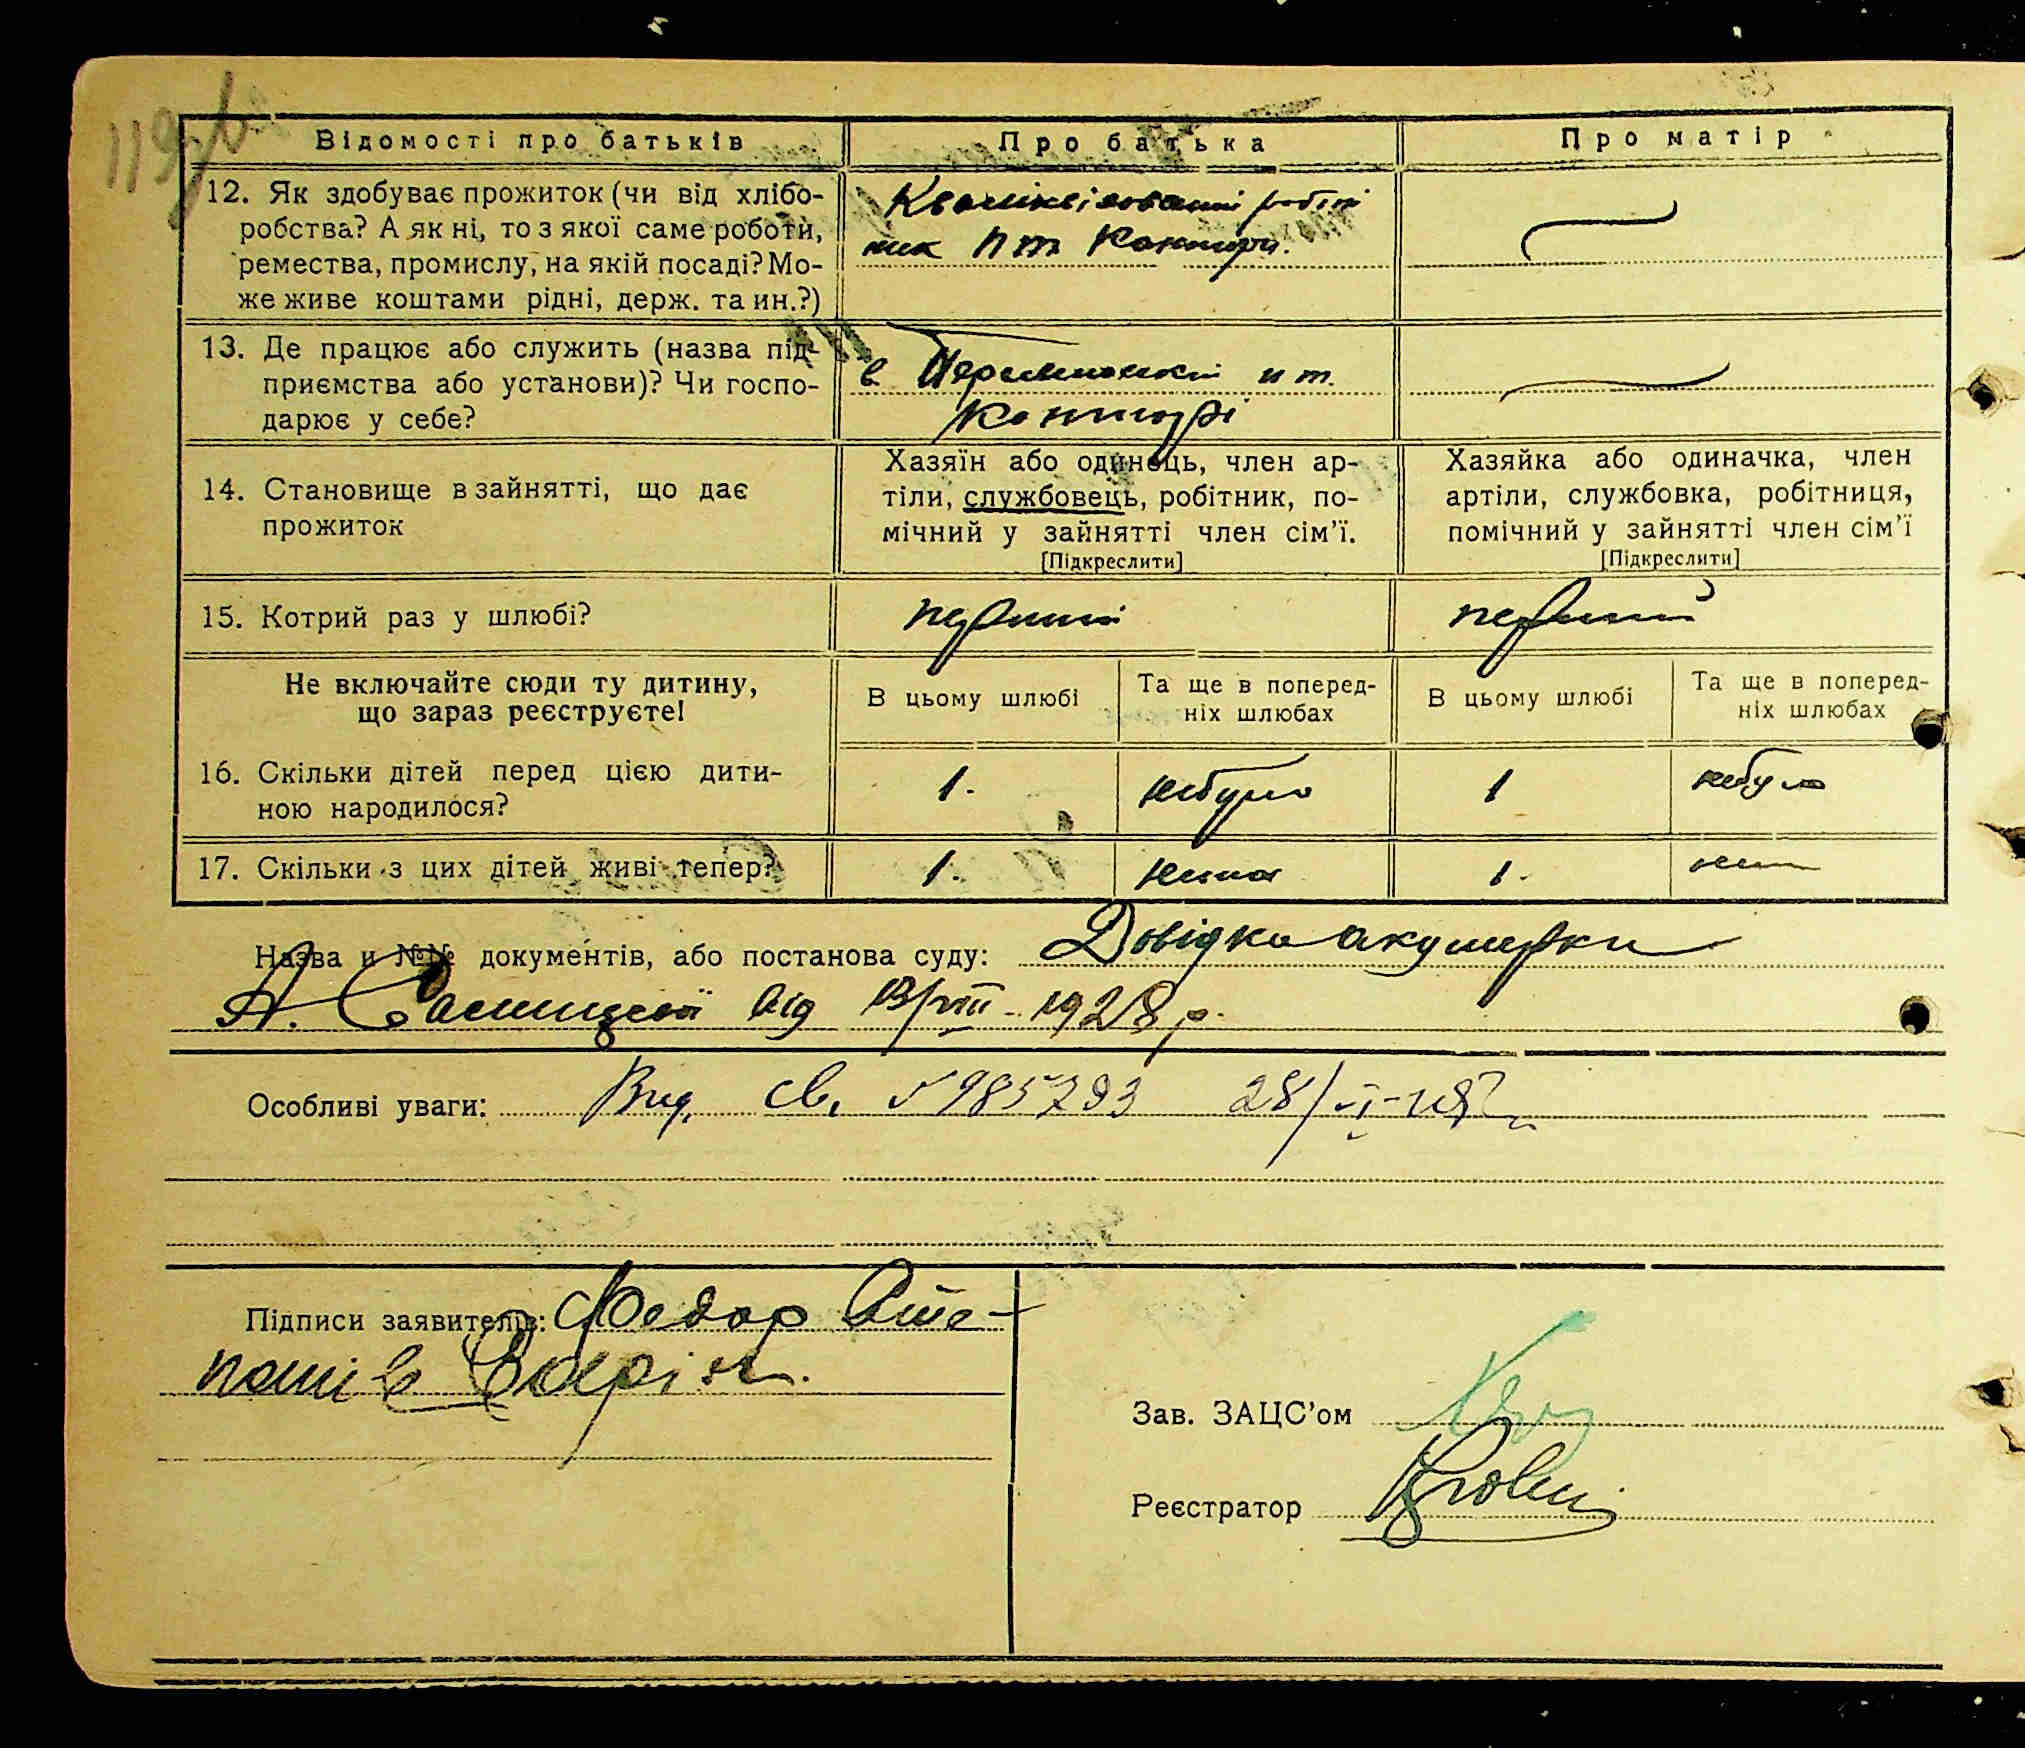 Відомості про батьків
Про батька
Про матір
12. Як здобуває прожиток (чи від хлібо-
робства? А як ні, то з якої саме роботи,
ремества, промислу, на якій посаді? Мо-
же живе коштами рідні, держ. та ин.?)
робіт
ник пт Контори.
13. Де працює або служить (назва під-
приємства або установи)? Чи госпо-
дарює у себе?
в пт.
Конторі
14. Становище в зайнятті, що дає
прожиток
Хазяїн або одинець, член ар-
тіли, службовець, робітник, по-
мічний у зайнятті член сім'ї.
[Підкреслити]
Хазяйка або одиначка, член
артіли, службовка, робітниця,
помічний у зайнятті член сім'ї
[Підкреслити]
15. Котрий раз у шлюбі?
первший
первший
Не включайте сюди ту дитину,
що зараз реєструєте!
В цьому шлюбі
Та ще в поперед-
ніх шлюбах
В цьому шлюбі
Та ще в поперед-
ніх шлюбах
16. Скільки дітей перед цією дити-
ною народилося?
1.
небуло
1
небуло
17. Скільки з цих дітей живі тепер?
1.
нема
1.
Назва и №№ документів, або постанова суду: Довідка акушерки
А. від 13/VIII 1928 р.
Особливі уваги: Вид. св. № 985793 28/VI
Підписи заявителів: Федор Сте-
панів
Зав. ЗАЦС'ом
Реєстратор